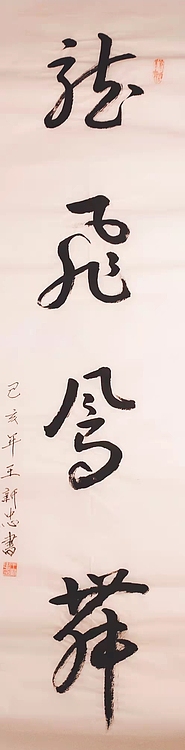 龍飛鳳舞
己亥年王新忠書